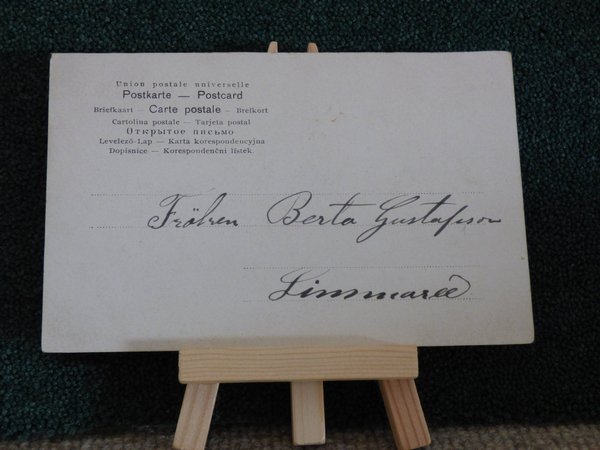 Union postale universelle
Postkarte — Postcard
Briefkaart — Carte postale — Brefkort
Cartolina postale — Tarjeta postal
Открытое письмо
Levelező-Lap — Karta korespondencyjna
Dopisnice — Korespondenční lístek.
Fröken Berta Gustafsson
Limmared